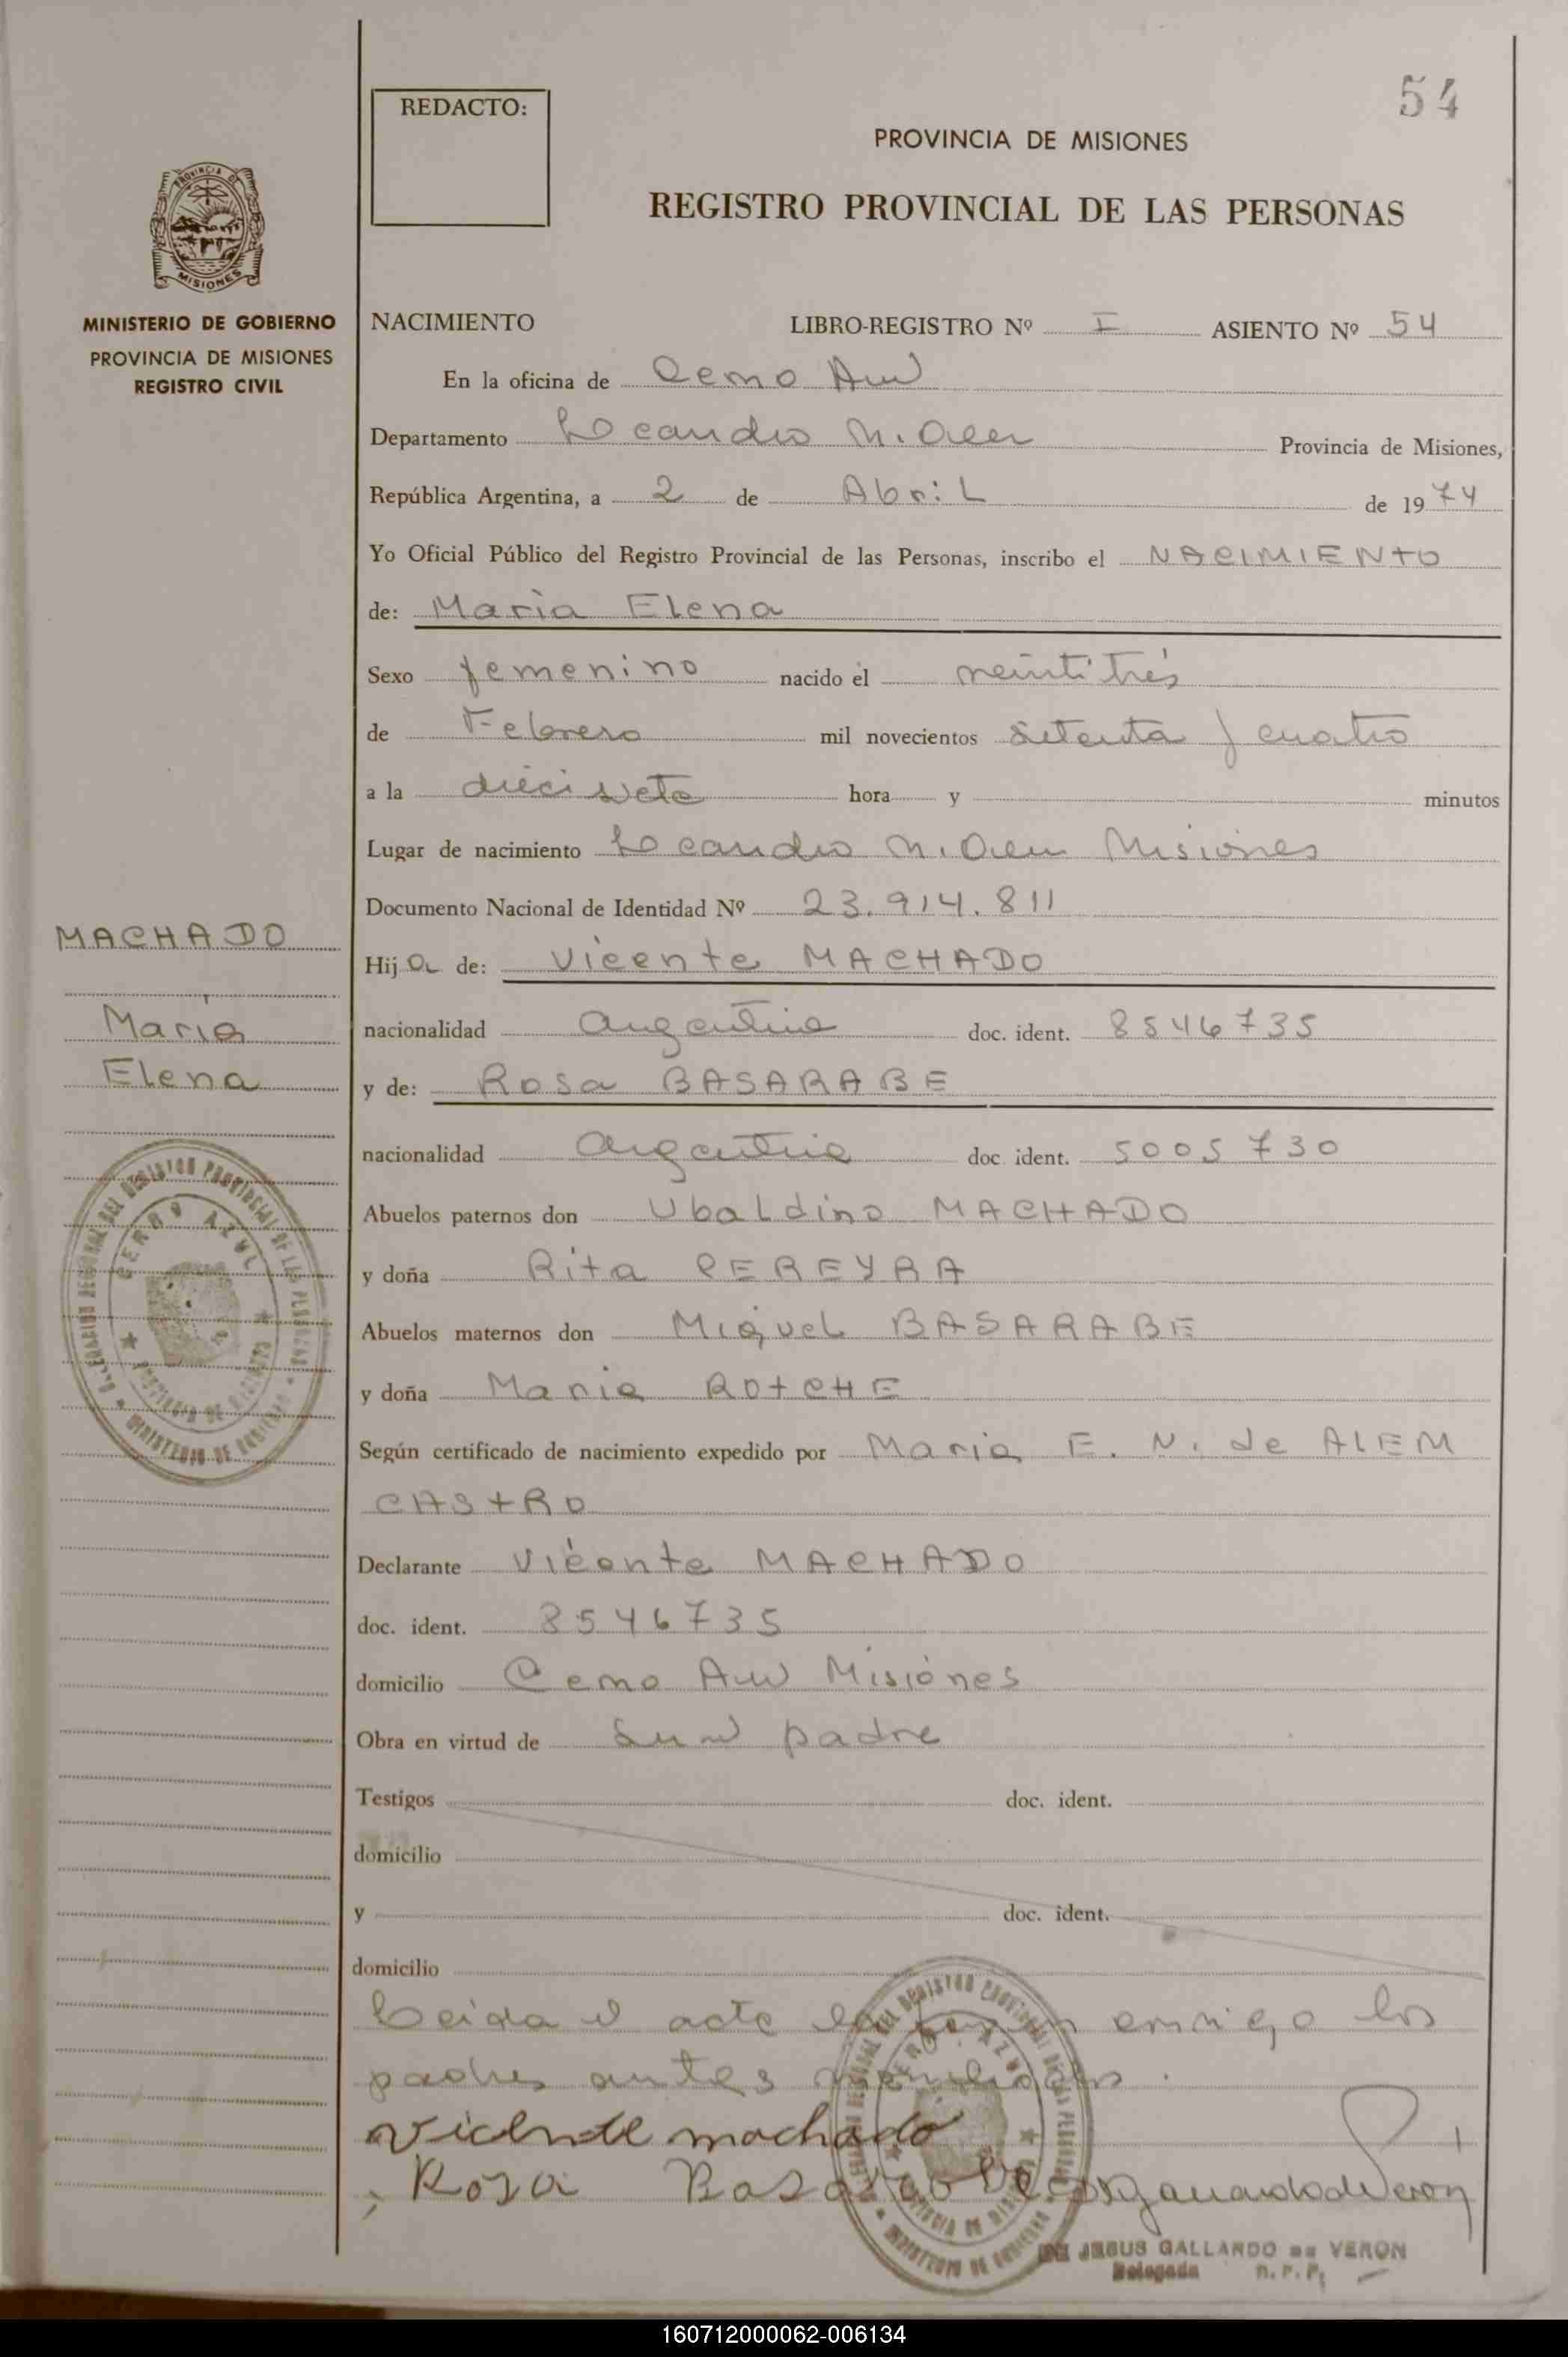 54
REDACTO:
PROVINCIA DE MISIONES
REGISTRO PROVINCIAL DE LAS PERSONAS
MINISTERIO DE GOBIERNO
PROVINCIA DE MISIONES
REGISTRO CIVIL
NACIMIENTO LIBRO-REGISTRO Nº I ASIENTO Nº 54
En la oficina de Cerro Azul
Departamento Leandro N. Alem Provincia de Misiones,
República Argentina, a 2 de Abril de 1974
Yo Oficial Público del Registro Provincial de las Personas, inscribo el NACIMIENTO
de: Maria Elena
Sexo femenino nacido el veintitrés
de Febrero mil novecientos setenta y cuatro
a la diecisiete hora y minutos
Lugar de nacimiento Leandro N. Alem Misiones
Documento Nacional de Identidad Nº 23.914.811
MACHADO
Maria
Elena
Hija de: Vicente MACHADO
nacionalidad argentina doc. ident. 8546735
y de: Rosa BASARABE
nacionalidad argentina doc. ident. 5005730
Abuelos paternos don Ubaldino MACHADO
y doña Rita PEREYRA
Abuelos maternos don Miguel BASARABE
y doña Maria ROTCHE
Según certificado de nacimiento expedido por Maria E. N. de ALEM
CASTRO
Declarante Vicente MACHADO
doc. ident. 8546735
domicilio Cerro Azul Misiones
Obra en virtud de ser padre
Testigos doc. ident.
domicilio
y doc. ident.
domicilio
Leida el acta la firman conmigo los
padres antes mencionados.
Vicente machado
Rosa Basarabe
JESUS GALLARDO DE VERON
Delegada R. P. P.
CERRO AZUL
160712000062-006134